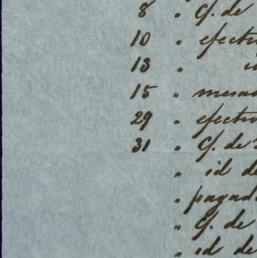 8 " C/. de
10 " efecti
13 "
15 " mesa
29 " efectiv
31 " C/. de
" id de
" pagad
" C/. de
" id de